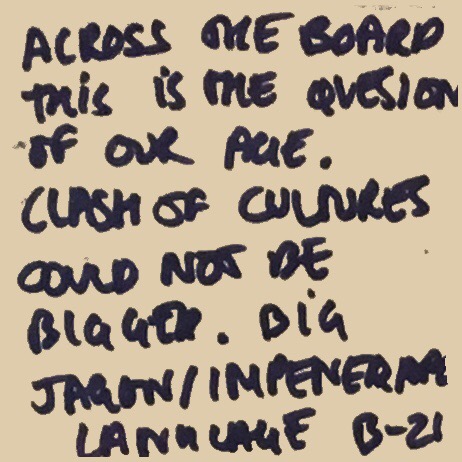 ACROSS THE BOARD
THIS IS THE QUESION
OF OUR AGE.
CLASH OF CULTURES
COULD NOT BE
BIGGER. BIG
JARGON/IMPENERA
LANGUAGE B-21